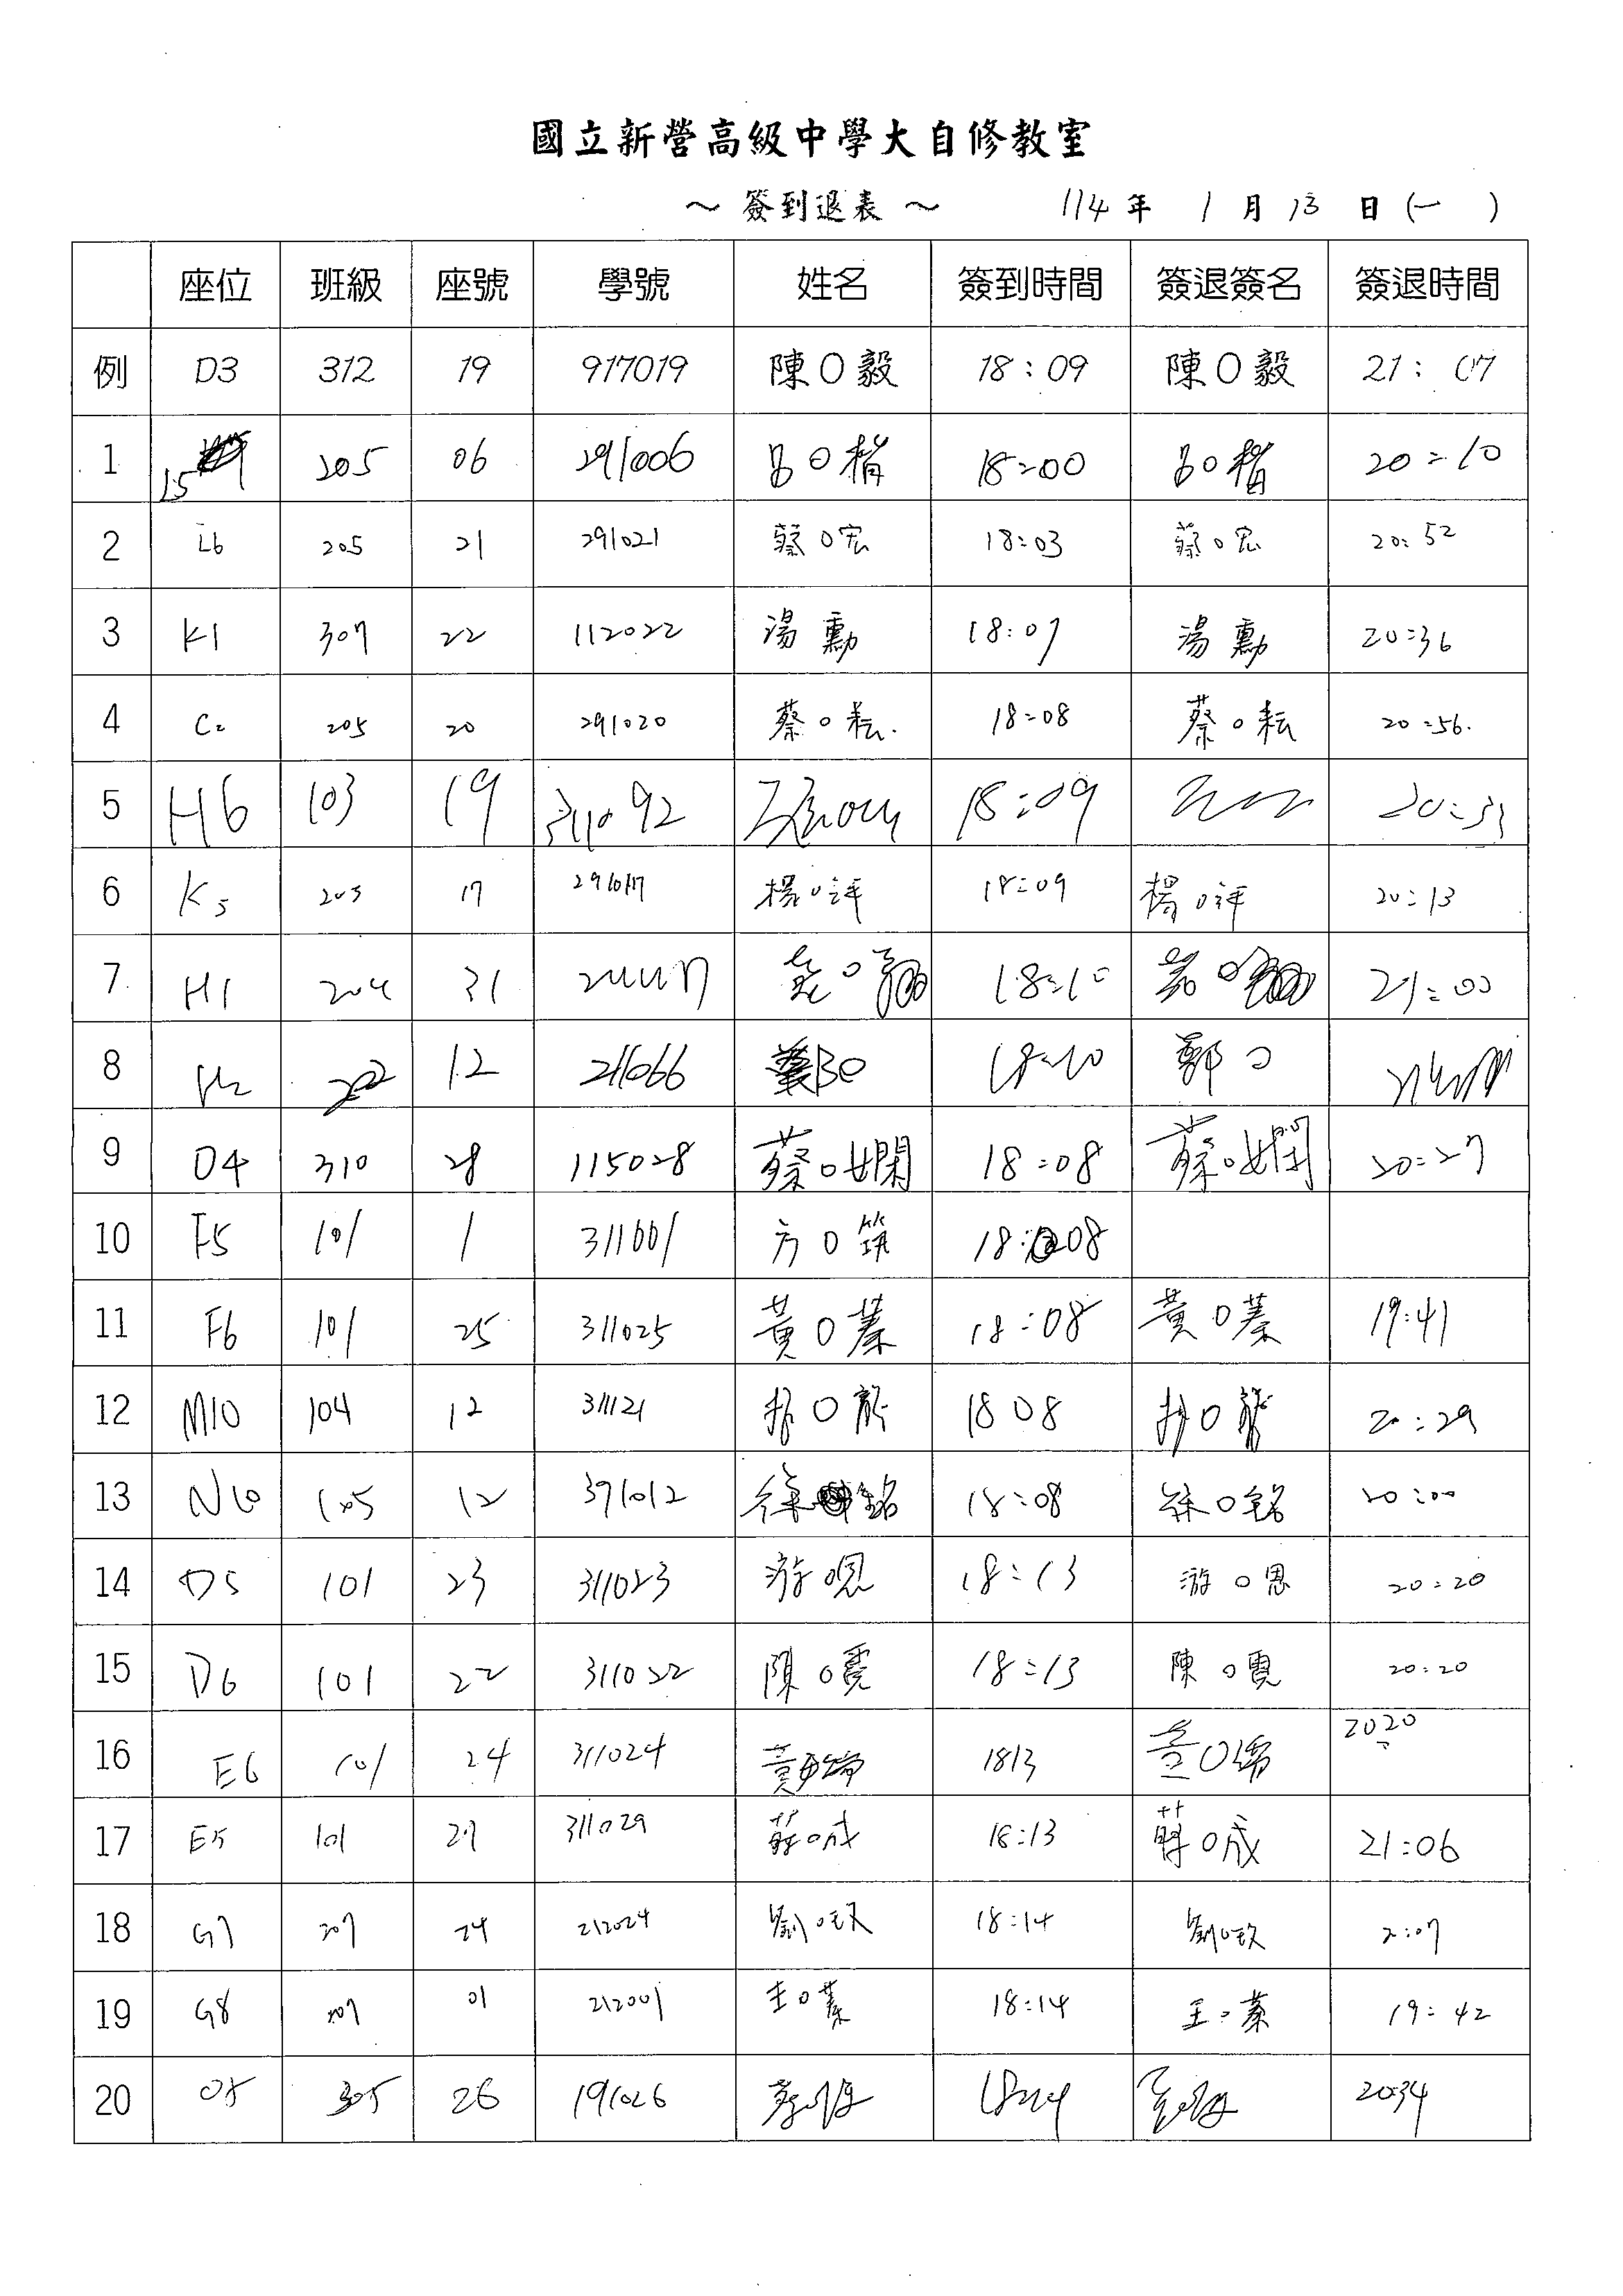 國立新營高級中學大自修教室
～ 簽到退表 ～ 114 年 1 月 13 日 (一 )
座位 班級 座號 學號 姓名 簽到時間 簽退簽名 簽退時間
例 D3 312 19 917019 陳O毅 18:09 陳O毅 21:07
1 205 06 291006 呂O楷 18:00 呂O楷 20:10
2 L6 205 21 291021 蔡O宏 18:03 蔡O宏 20:52
3 K1 307 22 112022 湯勳 18:07 湯勳 20:36
4 C2 205 20 291020 蔡O耘 18:08 蔡O耘 20:56
5 H6 103 19 311092 18:09
6 K5 203 17 291017 楊O評 18:09 楊O評 20:13
7 H1 204 31 18:10 21:00
8 12 211066 18:10 鄭O
9 D4 310 28 115028 蔡O嫻 18:08 蔡O嫻 20:27
10 F5 101 1 311001 方O筑 18:08
11 F6 101 25 311025 黃O蓁 18:08 黃O蓁 19:41
12 M10 104 12 311121 18 08 20:29
13 N10 105 12 391012 徐銘 18:08 徐O銘 20:00
14 D5 101 23 311023 游O恩 18:13 游O恩 20:20
15 D6 101 22 311022 陳O霓 18:13 陳O霓 20:20
16 E6 101 24 311024 1813 2020
17 E5 101 29 311029 薛O成 18:13 薛O成 21:06
18 G7 207 24 212024 劉O玟 18:14 劉O玟
19 G8 207 01 212001 王O蓁 18:14 王O蓁 19:42
20 305 26 191026 2034